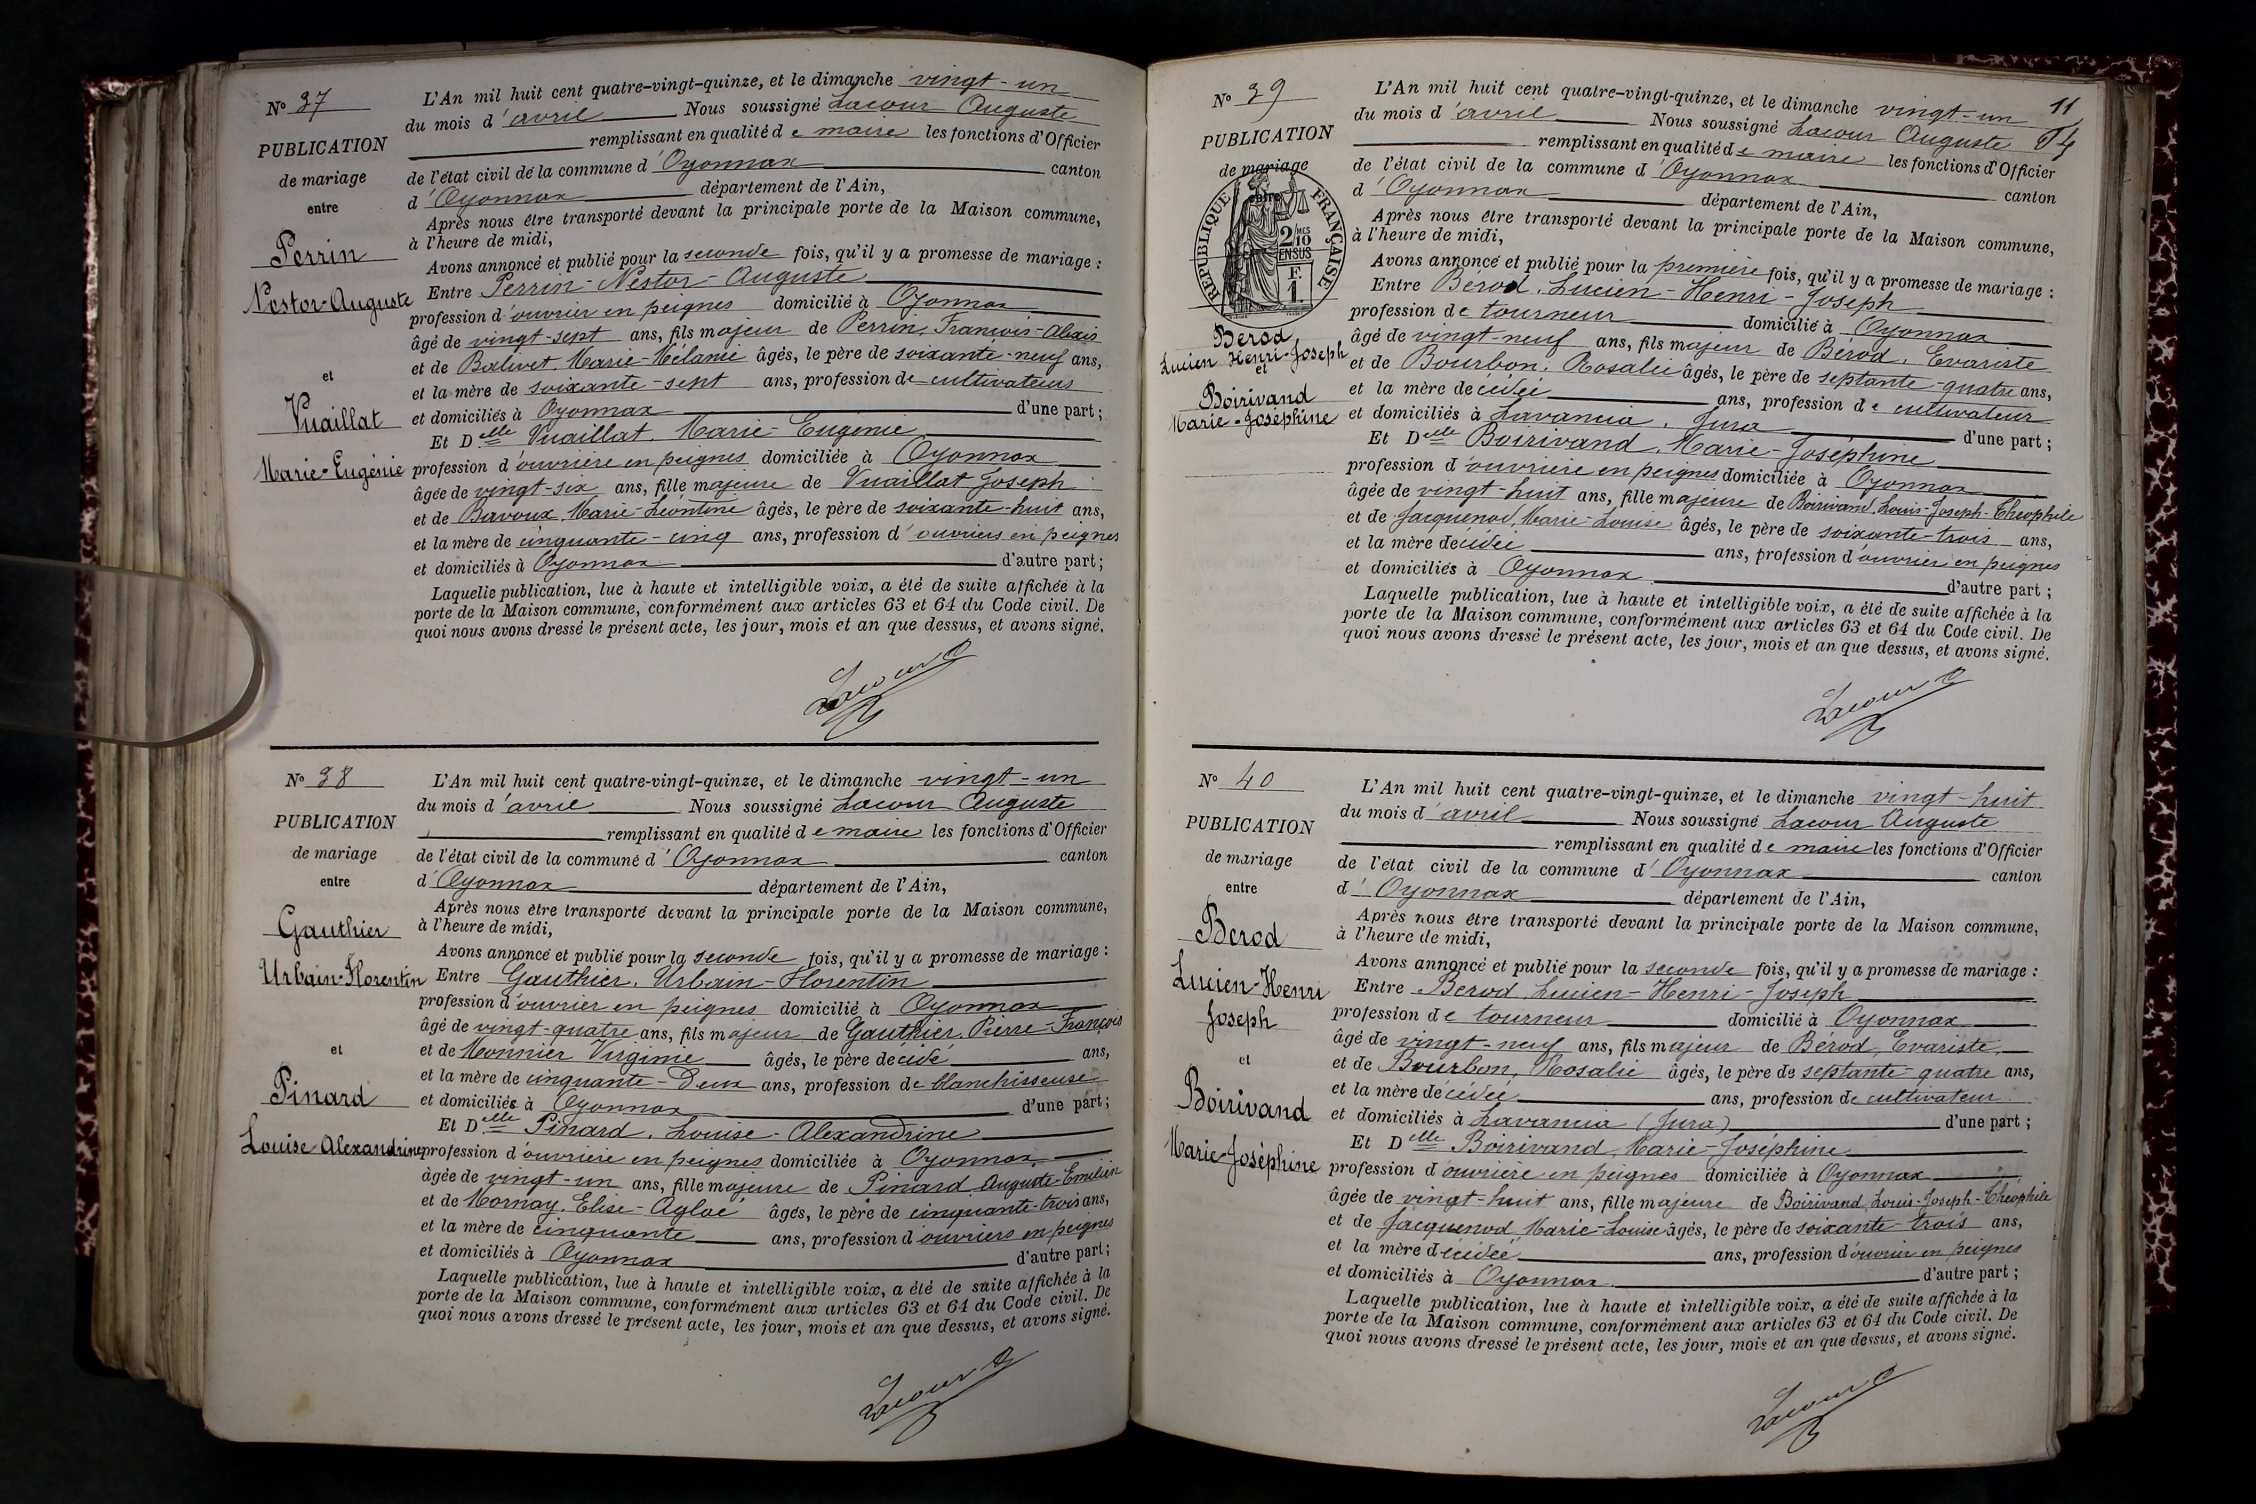 N° 37
PUBLICATION
de mariage
entre
Perrin
Nestor-Auguste
et
Vuaillat
Marie-Eugénie
L'An mil huit cent quatre-vingt-quinze, et le dimanche vingt-un
du mois d'avril Nous soussigné Lacour Auguste
remplissant en qualité de maire les fonctions d'Officier
de l'état civil de la commune d'Oyonnax canton
d'Oyonnax département de l'Ain,
Après nous être transporté devant la principale porte de la Maison commune,
à l'heure de midi,
Avons annoncé et publié pour la seconde fois, qu'il y a promesse de mariage :
Entre Perrin-Nestor-Auguste
profession d'ouvrier en peignes domicilié à Oyonnax
âgé de vingt-sept ans, fils majeur de Perrin, François-Alexis
et de Balivet, Marie-Mélanie âgés, le père de soixante-neuf ans,
et la mère de soixante-sept ans, profession de cultivateurs
et domiciliés à Oyonnax d'une part ;
Et Delle Vuaillat, Marie-Eugénie
profession d'ouvrière en peignes domiciliée à Oyonnax
âgée de vingt-six ans, fille majeure de Vuaillat Joseph
et de Bavoux, Marie-Léontine âgés, le père de soixante-huit ans,
et la mère de cinquante-cinq ans, profession d'ouvriers en peignes
et domiciliés à Oyonnax d'autre part ;
Laquelle publication, lue à haute et intelligible voix, a été de suite affichée à la
porte de la Maison commune, conformément aux articles 63 et 64 du Code civil. De
quoi nous avons dressé le présent acte, les jour, mois et an que dessus, et avons signé.
Lacour A
N° 38
PUBLICATION
de mariage
entre
Gauthier
Urbain-Florentin
et
Pinard
Louise-Alexandrine
L'An mil huit cent quatre-vingt-quinze, et le dimanche vingt-un
du mois d'avril Nous soussigné Lacour Auguste
remplissant en qualité de maire les fonctions d'Officier
de l'état civil de la commune d'Oyonnax canton
d'Oyonnax département de l'Ain,
Après nous être transporté devant la principale porte de la Maison commune,
à l'heure de midi,
Avons annoncé et publié pour la seconde fois, qu'il y a promesse de mariage :
Entre Gauthier, Urbain-Florentin
profession d'ouvrier en peignes domicilié à Oyonnax
âgé de vingt-quatre ans, fils majeur de Gauthier, Pierre-François
et de Monnier Virginie âgés, le père décédé ans,
et la mère de cinquante-deux ans, profession de blanchisseuse
et domiciliés à Oyonnax d'une part ;
Et Delle Pinard, Louise-Alexandrine
profession d'ouvrière en peignes domiciliée à Oyonnax
âgée de vingt-un ans, fille majeure de Pinard, Auguste-Emilien
et de Mornay, Elise-Aglaé âgés, le père de cinquante-trois ans,
et la mère de cinquante ans, profession d'ouvriers en peignes
et domiciliés à Oyonnax d'autre part ;
Laquelle publication, lue à haute et intelligible voix, a été de suite affichée à la
porte de la Maison commune, conformément aux articles 63 et 64 du Code civil. De
quoi nous avons dressé le présent acte, les jour, mois et an que dessus, et avons signé.
Lacour A
11
N° 39
PUBLICATION
de mariage
entre
RÉPUBLIQUE FRANÇAISE
2/10 MES
EN SUS
F.
1.
Bérod
Lucien Henri-Joseph
et
Boirivand
Marie-Joséphine
L'An mil huit cent quatre-vingt-quinze, et le dimanche vingt-un
du mois d'avril Nous soussigné Lacour Auguste
remplissant en qualité de maire les fonctions d'Officier
de l'état civil de la commune d'Oyonnax canton
d'Oyonnax département de l'Ain,
Après nous être transporté devant la principale porte de la Maison commune,
à l'heure de midi,
Avons annoncé et publié pour la première fois, qu'il y a promesse de mariage :
Entre Bérod, Lucien-Henri-Joseph
profession de tourneur domicilié à Oyonnax
âgé de vingt-neuf ans, fils majeur de Bérod, Evariste
et de Bourbon, Rosalie âgés, le père de septante-quatre ans,
et la mère décédée ans, profession de cultivateur
et domiciliés à Lavancia, Jura d'une part ;
Et Delle Boirivand, Marie-Joséphine
profession d'ouvrière en peignes domiciliée à Oyonnax
âgée de vingt-huit ans, fille majeure de Boirivand, Louis-Joseph-Théophile
et de Jacquenod, Marie-Louise âgés, le père de soixante-trois ans,
et la mère décédée ans, profession d'ouvrier en peignes
et domiciliés à Oyonnax d'autre part ;
Laquelle publication, lue à haute et intelligible voix, a été de suite affichée à la
porte de la Maison commune, conformément aux articles 63 et 64 du Code civil. De
quoi nous avons dressé le présent acte, les jour, mois et an que dessus, et avons signé.
Lacour A
N° 40
PUBLICATION
de mariage
entre
Berod
Lucien-Henri
Joseph
et
Boirivand
Marie-Joséphine
L'An mil huit cent quatre-vingt-quinze, et le dimanche vingt-huit
du mois d'avril Nous soussigné Lacour Auguste
remplissant en qualité de maire les fonctions d'Officier
de l'état civil de la commune d'Oyonnax canton
d'Oyonnax département de l'Ain,
Après nous être transporté devant la principale porte de la Maison commune,
à l'heure de midi,
Avons annoncé et publié pour la seconde fois, qu'il y a promesse de mariage :
Entre Berod, Lucien-Henri-Joseph
profession de tourneur domicilié à Oyonnax
âgé de vingt-neuf ans, fils majeur de Bérod, Evariste,
et de Bourbon, Rosalie âgés, le père de septante-quatre ans,
et la mère décédée ans, profession de cultivateur
et domiciliés à Lavancia (Jura) d'une part ;
Et Delle Boirivand, Marie-Joséphine
profession d'ouvrière en peignes domiciliée à Oyonnax
âgée de vingt-huit ans, fille majeure de Boirivand, Louis-Joseph-Théophile
et de Jacquenod, Marie-Louise âgés, le père de soixante-trois ans,
et la mère décédée ans, profession d'ouvrier en peignes
et domiciliés à Oyonnax d'autre part ;
Laquelle publication, lue à haute et intelligible voix, a été de suite affichée à la
porte de la Maison commune, conformément aux articles 63 et 64 du Code civil. De
quoi nous avons dressé le présent acte, les jour, mois et an que dessus, et avons signé.
Lacour A